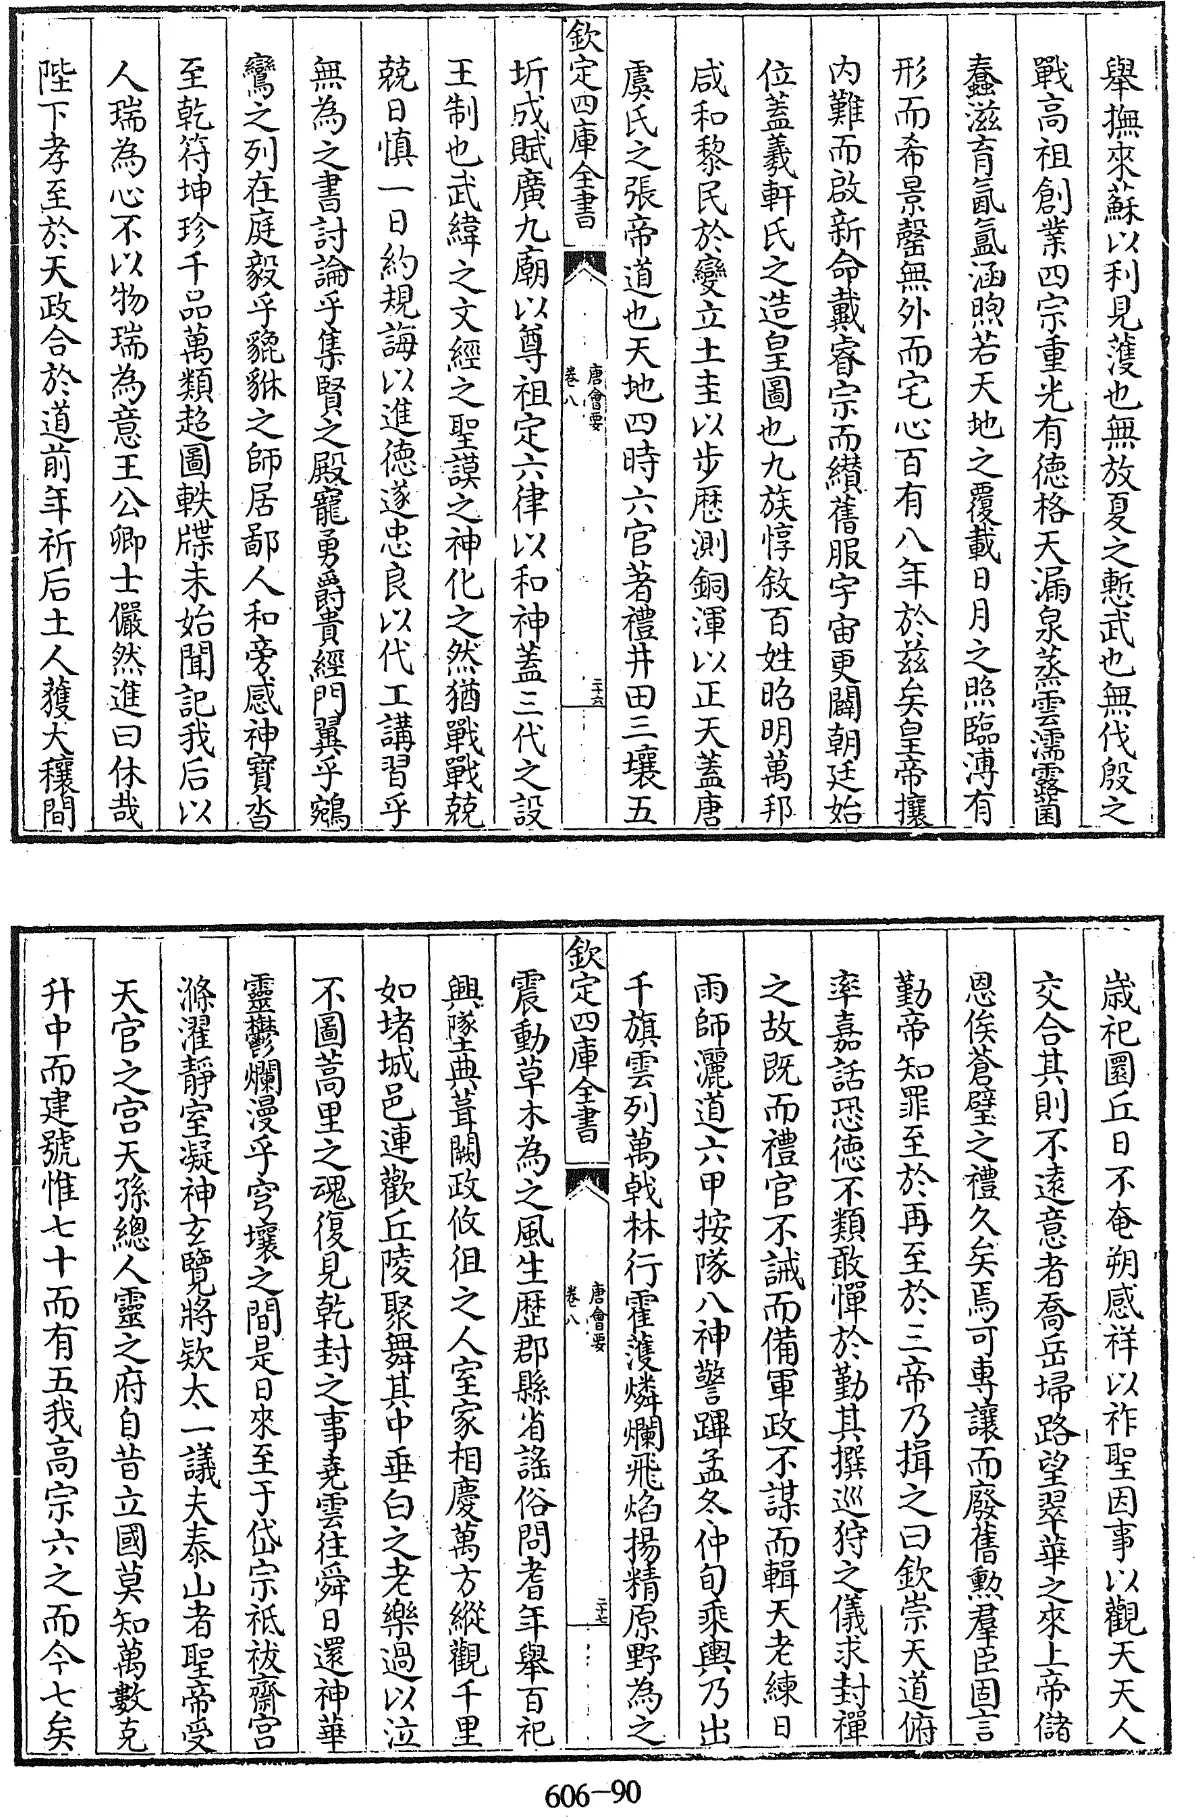 舉撫來蘇以利見蒦也無放夏之慙武也無伐殷之
戰高祖創業四宗重光有德格天漏泉蒸雲濡露菌
蠢滋育氤氳涵煦若天地之覆載日月之照臨溥有
形而希景罄無外而宅心百有八年於兹矣皇帝攘
内難而啟新命戴睿宗而纉舊服宇宙更闢朝廷始
位蓋羲軒氏之造皇圖也九族惇敘百姓昭明萬邦
咸和黎民於變立土圭以步歴測銅渾以正天蓋唐
虞氏之張帝道也天地四時六官著禮井田三壤五
欽定四庫全書
唐會要
卷八
二十六
圻成賦廣九廟以尊祖定六律以和神蓋三代之設
王制也武緯之文經之聖謨之神化之然猶戰戰兢
兢日慎一日約規誨以進德遂忠良以代工講習乎
無為之書討論乎集賢之殿寵勇爵貴經門翼乎鵷
鸞之列在庭毅乎貔貅之師居鄙人和旁感神寶沓
至乾符坤珍千品萬類超圖軼牒未始聞記我后以
人瑞為心不以物瑞為意王公卿士儼然進曰休哉
陛下孝至於天政合於道前年祈后土人獲大穰間
歳祀圜丘日不奄朔感祥以祚聖因事以觀天天人
交合其則不逺意者喬岳埽路望翠華之來上帝儲
恩俟蒼璧之禮久矣焉可専讓而廢舊勲羣臣固言
勤帝知罪至於再至於三帝乃揖之曰欽崇天道俯
率嘉話恐德不類敢憚於勤其撰巡狩之儀求封禪
之故既而禮官不誡而備軍政不謀而輯天老練日
雨師灑道六甲按隊八神警蹕孟冬仲旬乘輿乃出
千旗雲列萬戟林行霍蒦燐爛飛焰揚精原野為之
欽定四庫全書
唐會要
卷八
二十七
震動草木為之風生歴郡縣省謡俗問耆年舉百祀
興墜典葺闕政攸徂之人室家相慶萬方縱觀千里
如堵城邑連歡丘陵聚舞其中垂白之老樂過以泣
不圖蒿里之魂復見乾封之事堯雲往舜日還神華
靈鬱爛漫乎穹壤之間是日來至于岱宗祗祓齋宫
滌濯靜室凝神玄覽將欵太一議夫泰山者聖帝受
天官之宫天孫總人靈之府自昔立國莫知萬數克
升中而建號惟七十而有五我高宗六之而今七矣
606-90